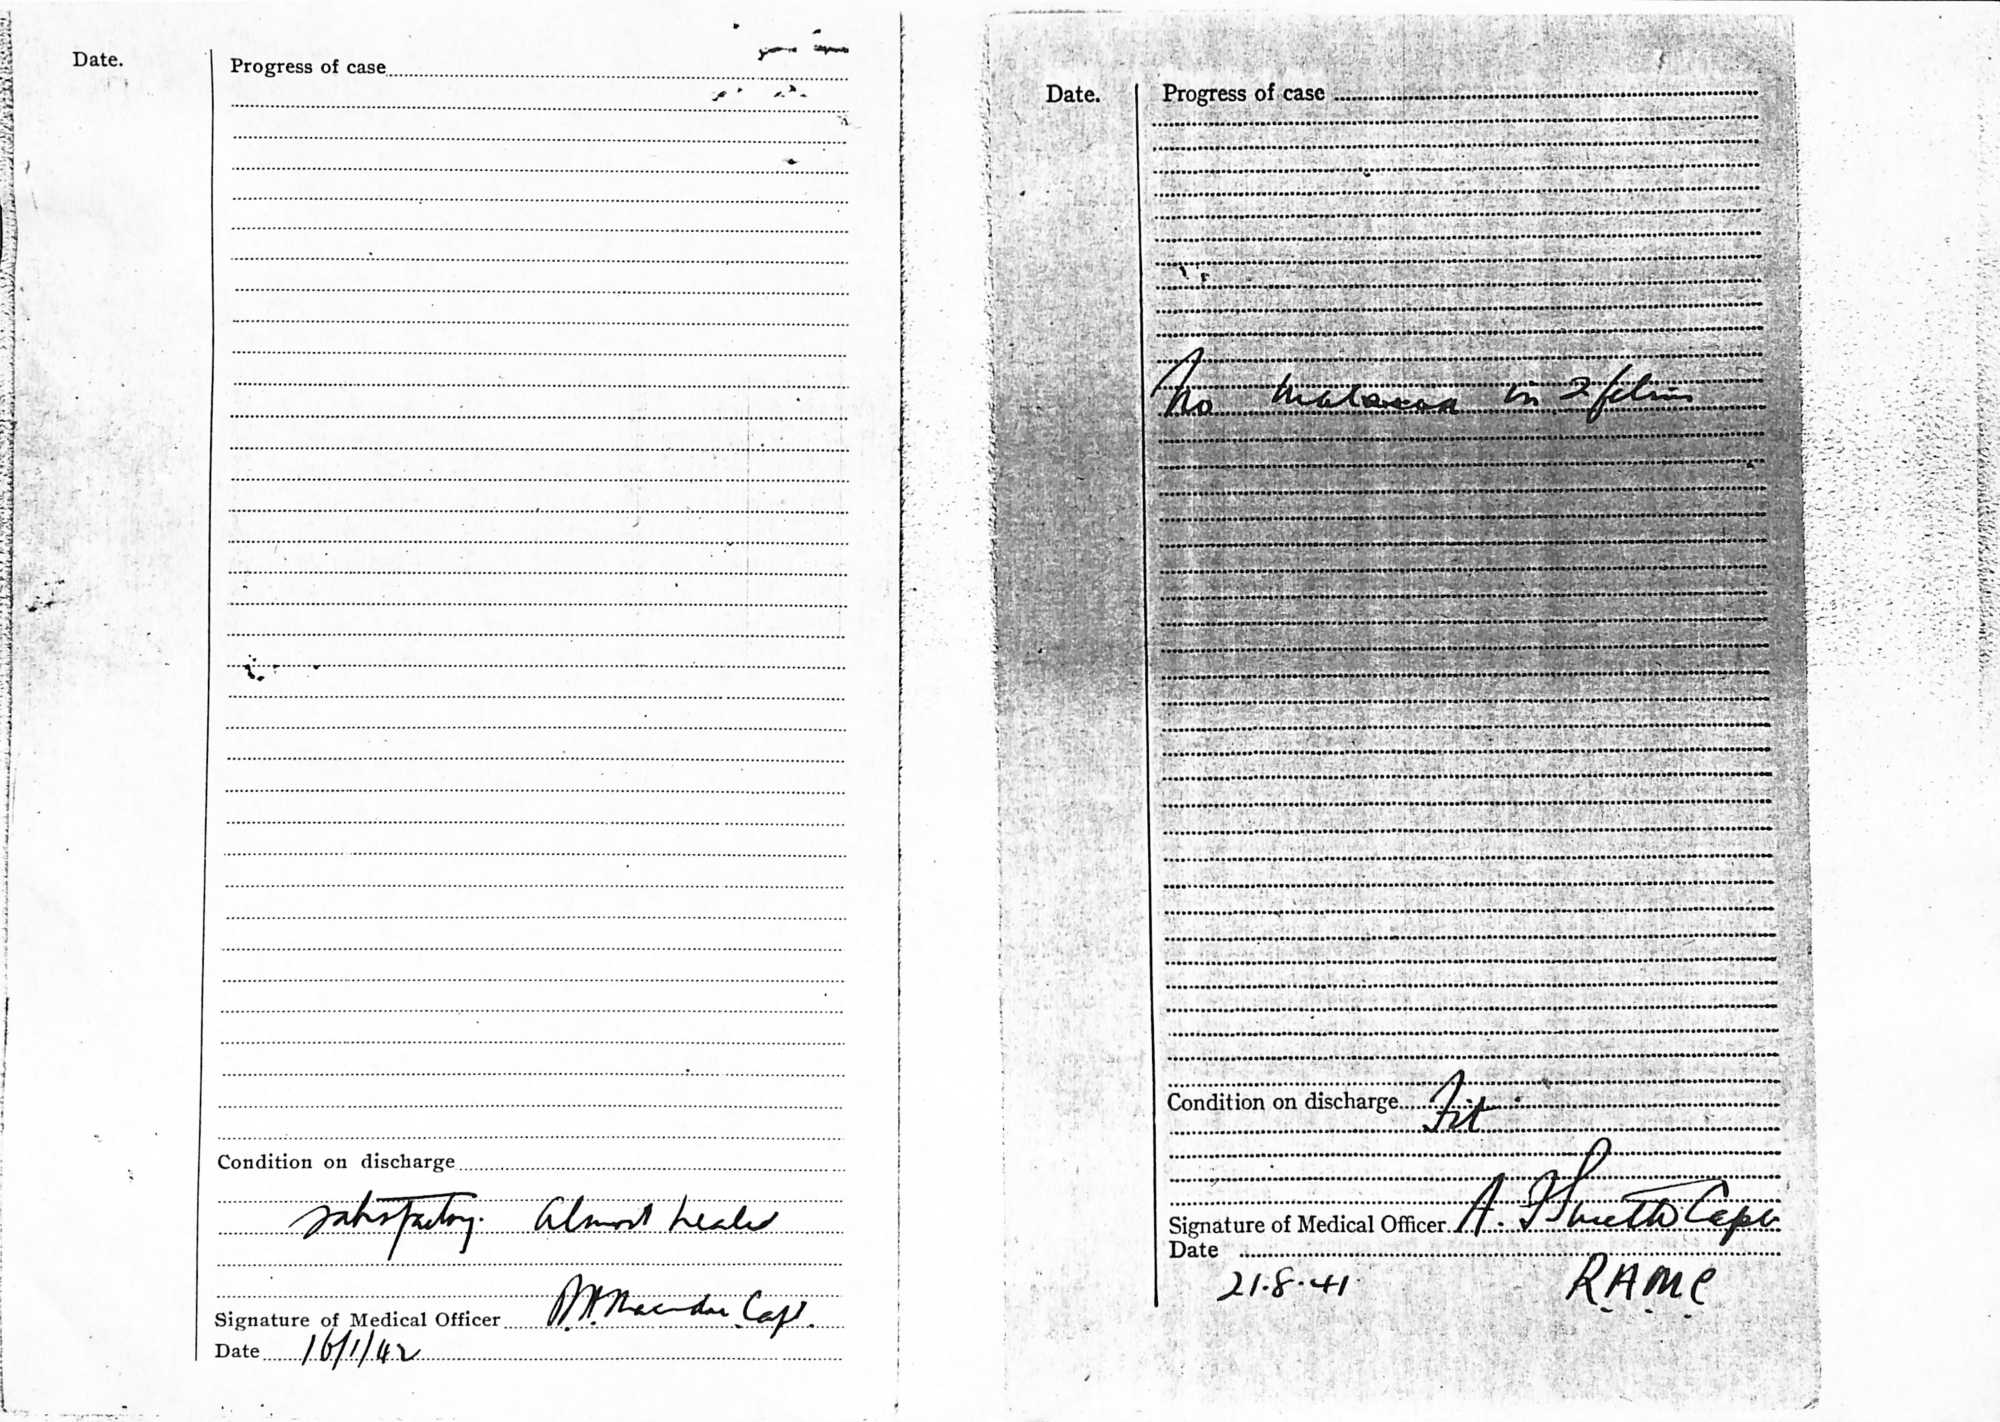 Date.
Progress of case
Condition on discharge
satisfactory. Almost healed
Signature of Medical Officer Capt.
Date 16/1/42
Date.
Progress of case
No malaria in 2 films
Condition on discharge Fit
Signature of Medical Officer A. Capt
Date
21.8.41 R.A.M.C